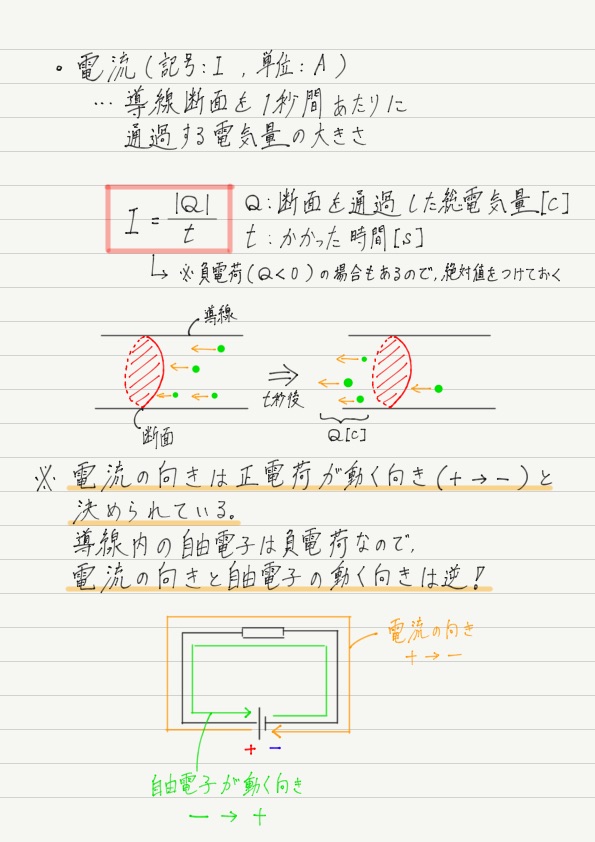 • 電流（記号：I ，単位：A）
… 導線断面を1秒間あたりに
通過する電気量の大きさ
I = |Q| / t
Q：断面を通過した総電気量[C]
t：かかった時間[s]
※負電荷（Q<0）の場合もあるので，絶対値をつけておく
導線
⇒
t秒後
断面
Q[C]
※ 電流の向きは正電荷が動く向き（+→−）と
決められている。
導線内の自由電子は負電荷なので，
電流の向きと自由電子の動く向きは逆！
電流の向き
+ → −
+ −
自由電子が動く向き
− → +